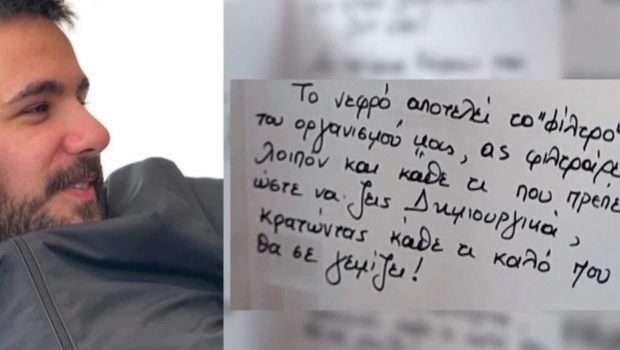 Το νεφρό αποτελεί το "φίλτρο"
του οργανισμού μας, ας φιλτράρε
λοιπόν και κάθε τι που πρέπε
ώστε να ζεις Δημιουργικά,
κρατώντας κάθε τι καλό που
θα σε γεμίζει!